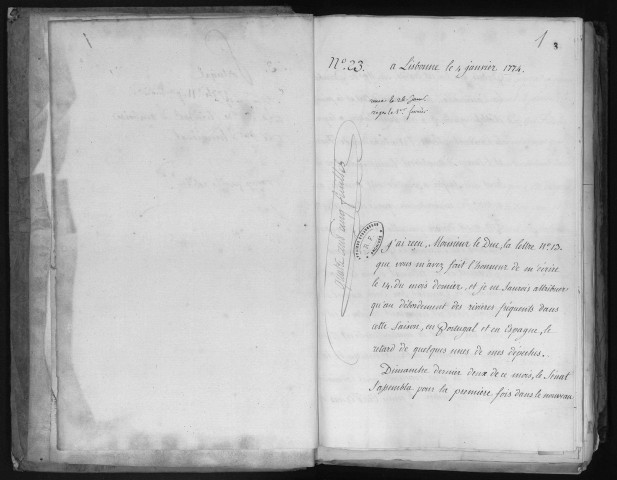 1 3
N.º 23. a Lisbonne le 4 janvier 1774.
reçu le 1.er fevrier
J'ai reçu, Monsieur le Duc, la lettre N.º 13.
que vous m'avez fait l'honneur de m'écrire
le 14. du mois dernier, et je ne saurois attribuer
qu'au débordement des rivieres fréquents dans
cette Saison, en Portugal et en Espagne, le
retard de quelques unes de mes dépêches.
Dimanche dernier deux de ce mois, le Sénat
s'assembla pour la première fois dans le nouveau